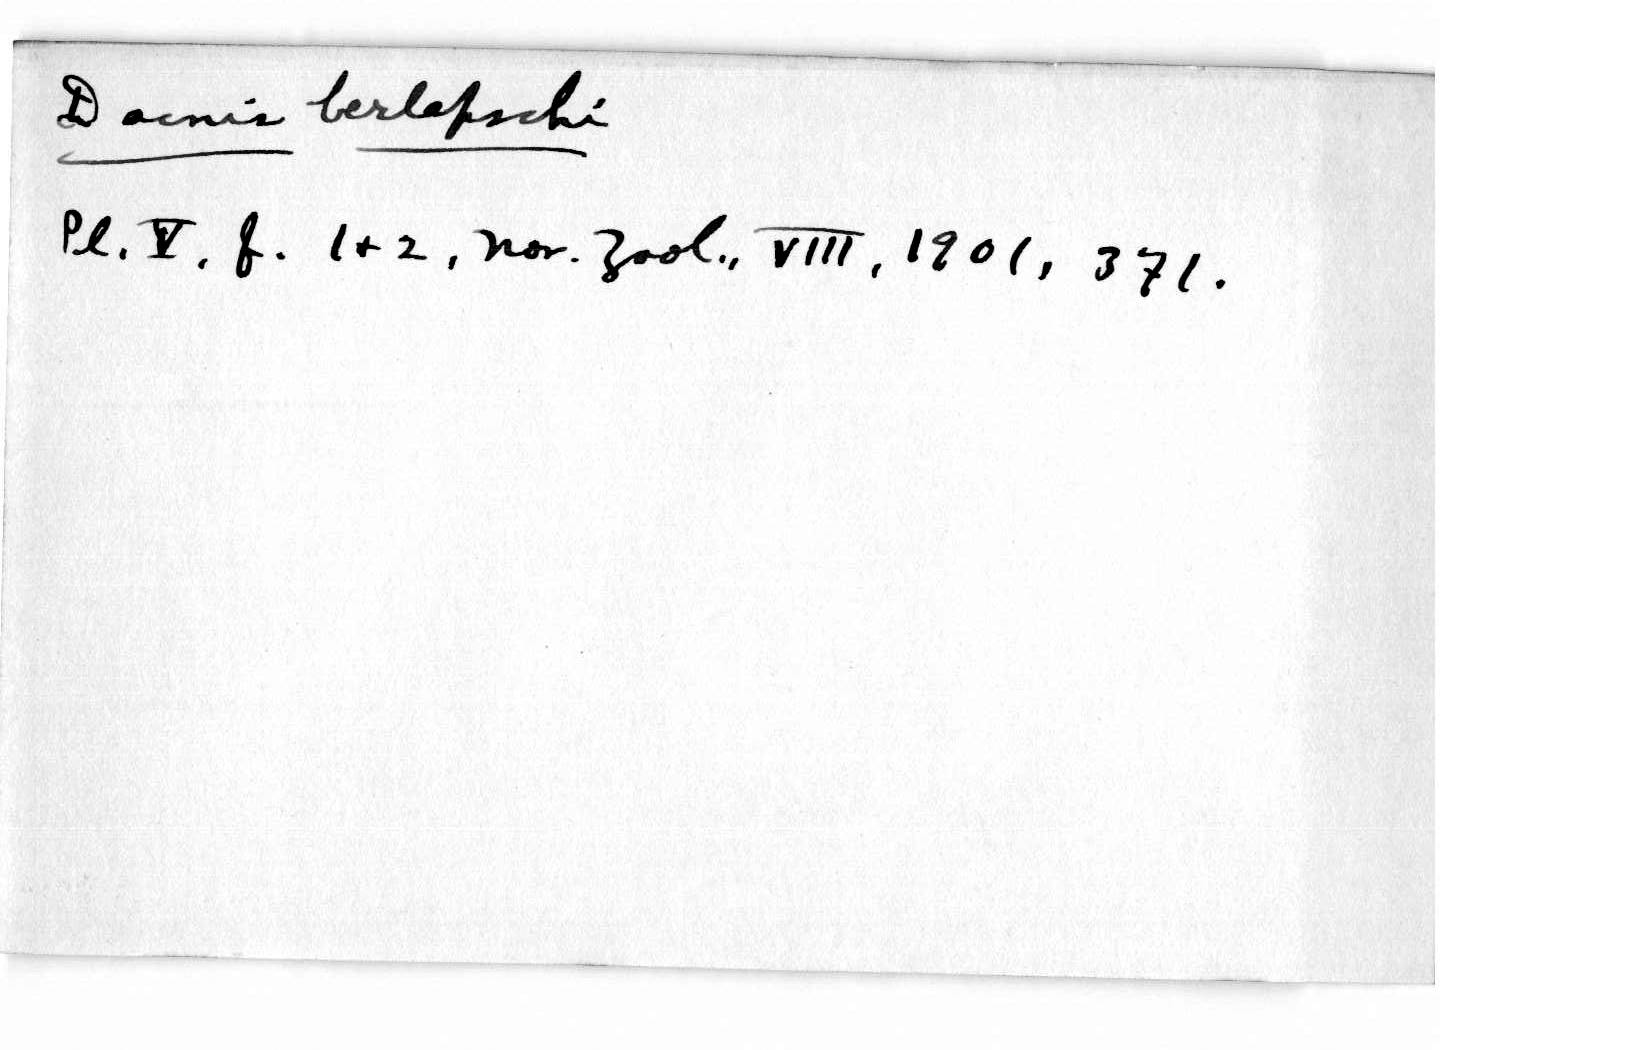 Dacnis berlepschi
Pl. V, f. 1+2, Nov. Zool., VIII, 1901, 371.